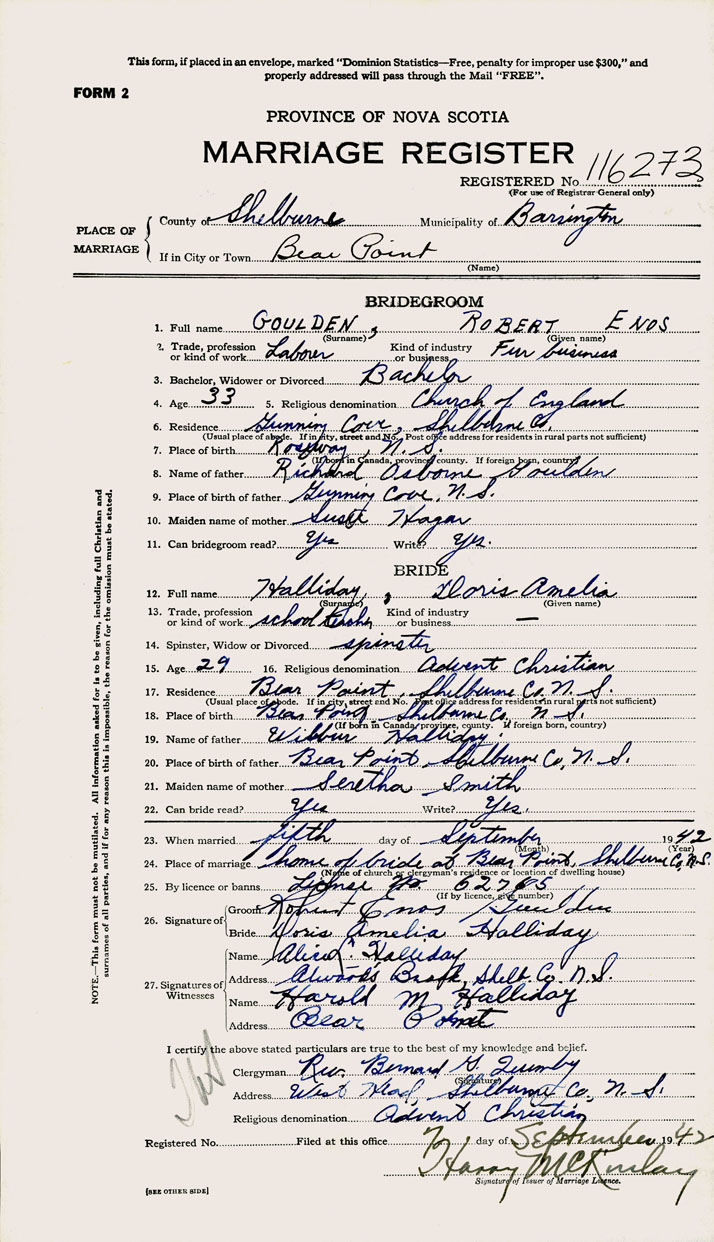 This form, if placed in an envelope, marked "Dominion Statistics—Free, penalty for improper use $300," and
properly addressed will pass through the Mail "FREE".
FORM 2
PROVINCE OF NOVA SCOTIA
MARRIAGE REGISTER
REGISTERED No 116273
(For use of Registrar General only)
PLACE OF MARRIAGE
County of Shelburne Municipality of Barrington
If in City or Town Bear Point
(Name)
BRIDEGROOM
1. Full name GOULDEN, ROBERT ENOS
(Surname) (Given name)
2. Trade, profession or kind of work Laborer Kind of industry or business Fur business
3. Bachelor, Widower or Divorced Bachelor
4. Age 33 5. Religious denomination Church of England
6. Residence Gunning Cove, Shelburne Co.
(Usual place of abode. If in city, street and No. Post office address for residents in rural parts not sufficient)
7. Place of birth Roseway, N.S.
(If born in Canada, province, county. If foreign born, country)
8. Name of father Richard Osborne Goulden
9. Place of birth of father Gunning Cove, N.S.
10. Maiden name of mother Susie Hagar
11. Can bridegroom read? Yes Write? Yes.
BRIDE
12. Full name Halliday, Doris Amelia
(Surname) (Given name)
13. Trade, profession or kind of work school teacher Kind of industry or business —
14. Spinster, Widow or Divorced spinster
15. Age 29 16. Religious denomination Advent Christian
17. Residence Bear Point, Shelburne Co. N.S.
(Usual place of abode. If in city, street and No. Post office address for residents in rural parts not sufficient)
18. Place of birth Bear Point, Shelburne Co. N.S.
(If born in Canada, province, county. If foreign born, country)
19. Name of father Wilbur Halliday
20. Place of birth of father Bear Point, Shelburne Co, N.S.
21. Maiden name of mother Seretha Smith
22. Can bride read? Yes Write? Yes.
23. When married fifth day of September 1942
(Month) (Year)
24. Place of marriage home of bride at Bear Point, Shelburne Co, N.S.
(Name of church or clergyman's residence or location of dwelling house)
25. By licence or banns License No 62765
(If by licence, give number)
26. Signature of
Groom Robert Enos Goulden
Bride Doris Amelia Halliday
27. Signatures of Witnesses
Name Halliday
Address Atwood's Brook, Shelb. Co. N.S.
Name Harold M Halliday
Address Bear Point
I certify the above stated particulars are true to the best of my knowledge and belief.
Clergyman Rev. Bernard G. Quimby
(Signature)
Address West Head, Shelburne Co, N.S.
Religious denomination Advent Christian
Registered No. Filed at this office day of September 1942
Harry McKinlay
Signature of Issuer of Marriage Licence.
[SEE OTHER SIDE]
NOTE.—This form must not be mutilated. All information asked for is to be given, including full Christian and
surnames of all parties, and if for any reason this is impossible, the reason for the omission must be stated.